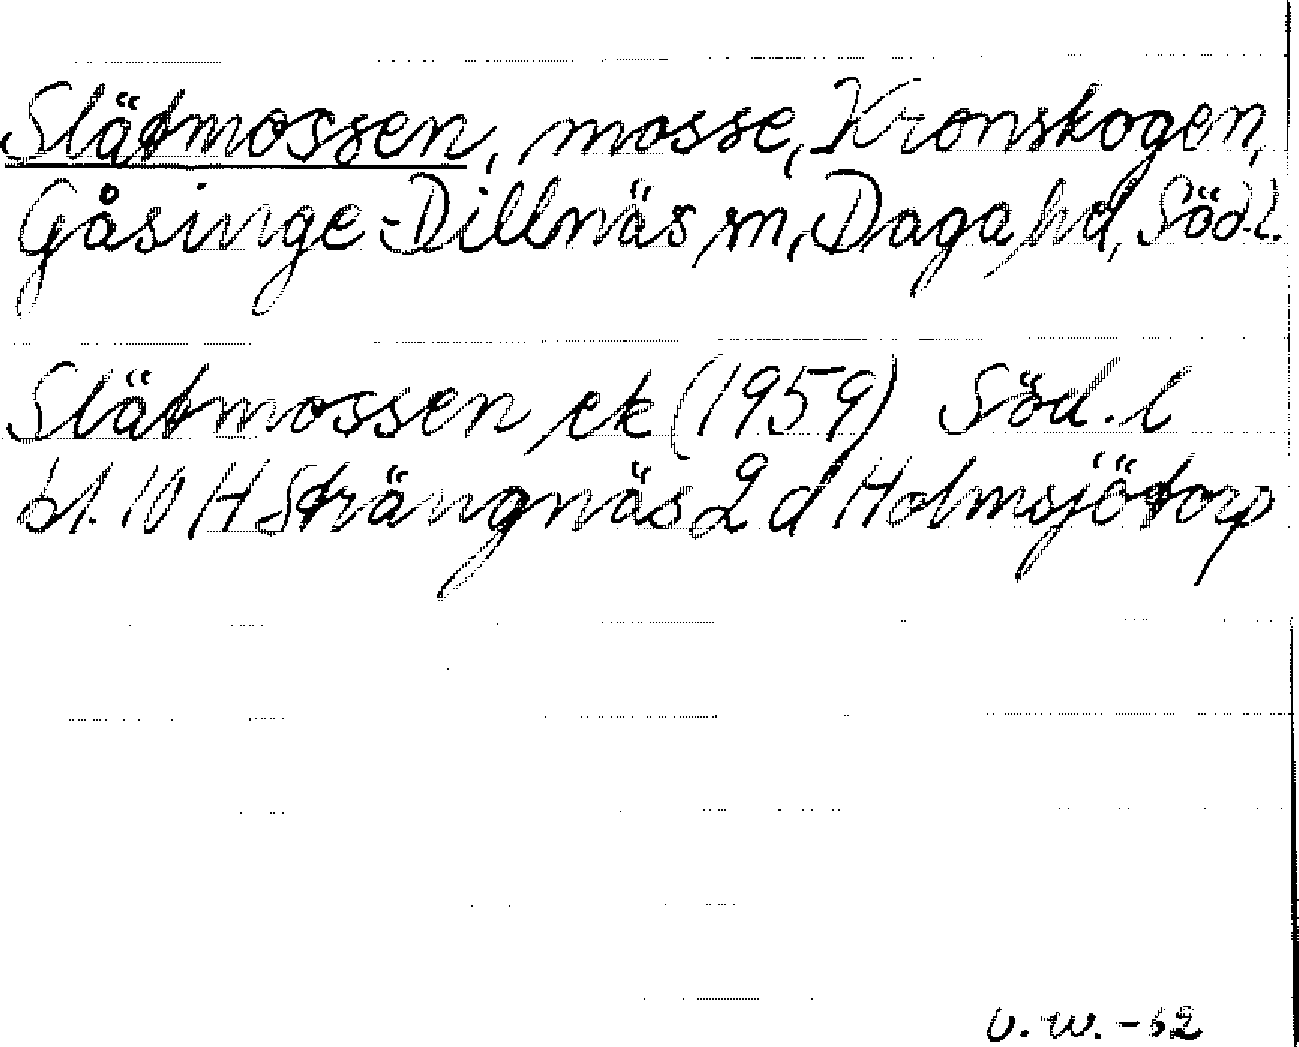 Slätmossen, mosse, Kronskogen,
Gåsinge-Dillnäs sn, Daga hd, Söd.l.
Slätmossen ek (1959) Söd. l
bl. 10 H Strängnäs 2 d Holmsjötorp
U. W. -62